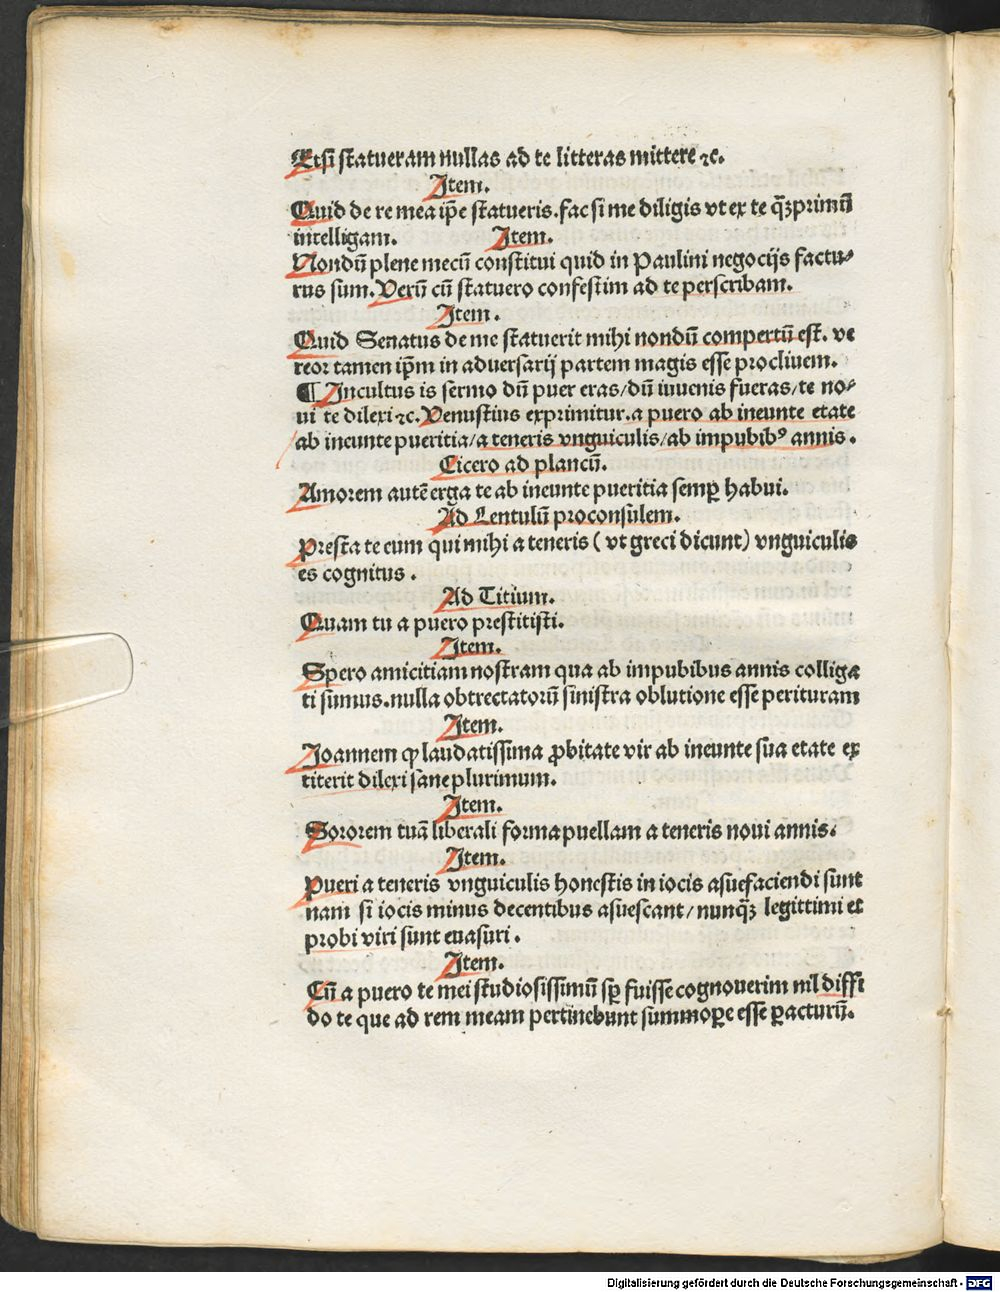 Etsi statueram nullas ad te litteras mittere ⁊c.
Item.
Quid de re mea ip̄e statueris. fac si me diligis vt ex te q̄ꝫprimū
intelligam. Item.
Nondū plene mecū constitui quid in Paulini negocijs factu⸗
rus sum. Verū cū statuero confestim ad te perscribam.
Item.
Quid Senatus de me statuerit mihi nondū compertū est. ve
reor tamen ip̄m in aduersarij partem magis esse procliuem.
¶ Incultus is sermo dū puer eras/dū iuuenis fueras/te no⸗
ui te dilexi ⁊c. Venustius exprimitur. a puero ab ineunte etate
ab ineunte pueritia/a teneris vnguiculis/ab impubibꝰ annis.
Cicero ad plancū.
Amorem autē erga te ab ineunte pueritia semꝑ habui.
Ad Lentulū proconsulem.
Presta te eum qui mihi a teneris (vt greci dicunt) vnguiculis
es cognitus.
Ad Titium.
Quam tu a puero prestitisti.
Item.
Spero amicitiam nostram qua ab impubibus annis colliga
ti sumus. nulla obtrectatorū sinistra oblutione esse perituram
Item.
Joannem ꝙ laudatissima ꝓbitate vir ab ineunte sua etate ex
titerit dilexi sane plurimum.
Item.
Sororem tuā liberali forma puellam a teneris noui annis.
Item.
Pueri a teneris vnguiculis honestis in iocis asuefaciendi sunt
nam si iocis minus decentibus asuescant/nunq̄ꝫ legittimi et
probi viri sunt euasuri.
Item.
Cū a puero te mei studiosissimū sꝑ fuisse cognouerim nil diffi
do te que ad rem meam pertinebunt summoꝑe esse ꝑacturū.
Digitalisierung gefördert durch die Deutsche Forschungsgemeinschaft - DFG